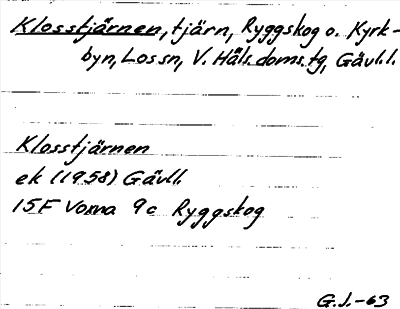 Klosstjärnen, tjärn, Ryggskog o. Kyrk-
byn, Lossn, V. Häls. doms. tg, Gävl. l.
Klosstjärnen
ek (1958) Gävll.
15F Voxna 9c Ryggskog
G.J.-63